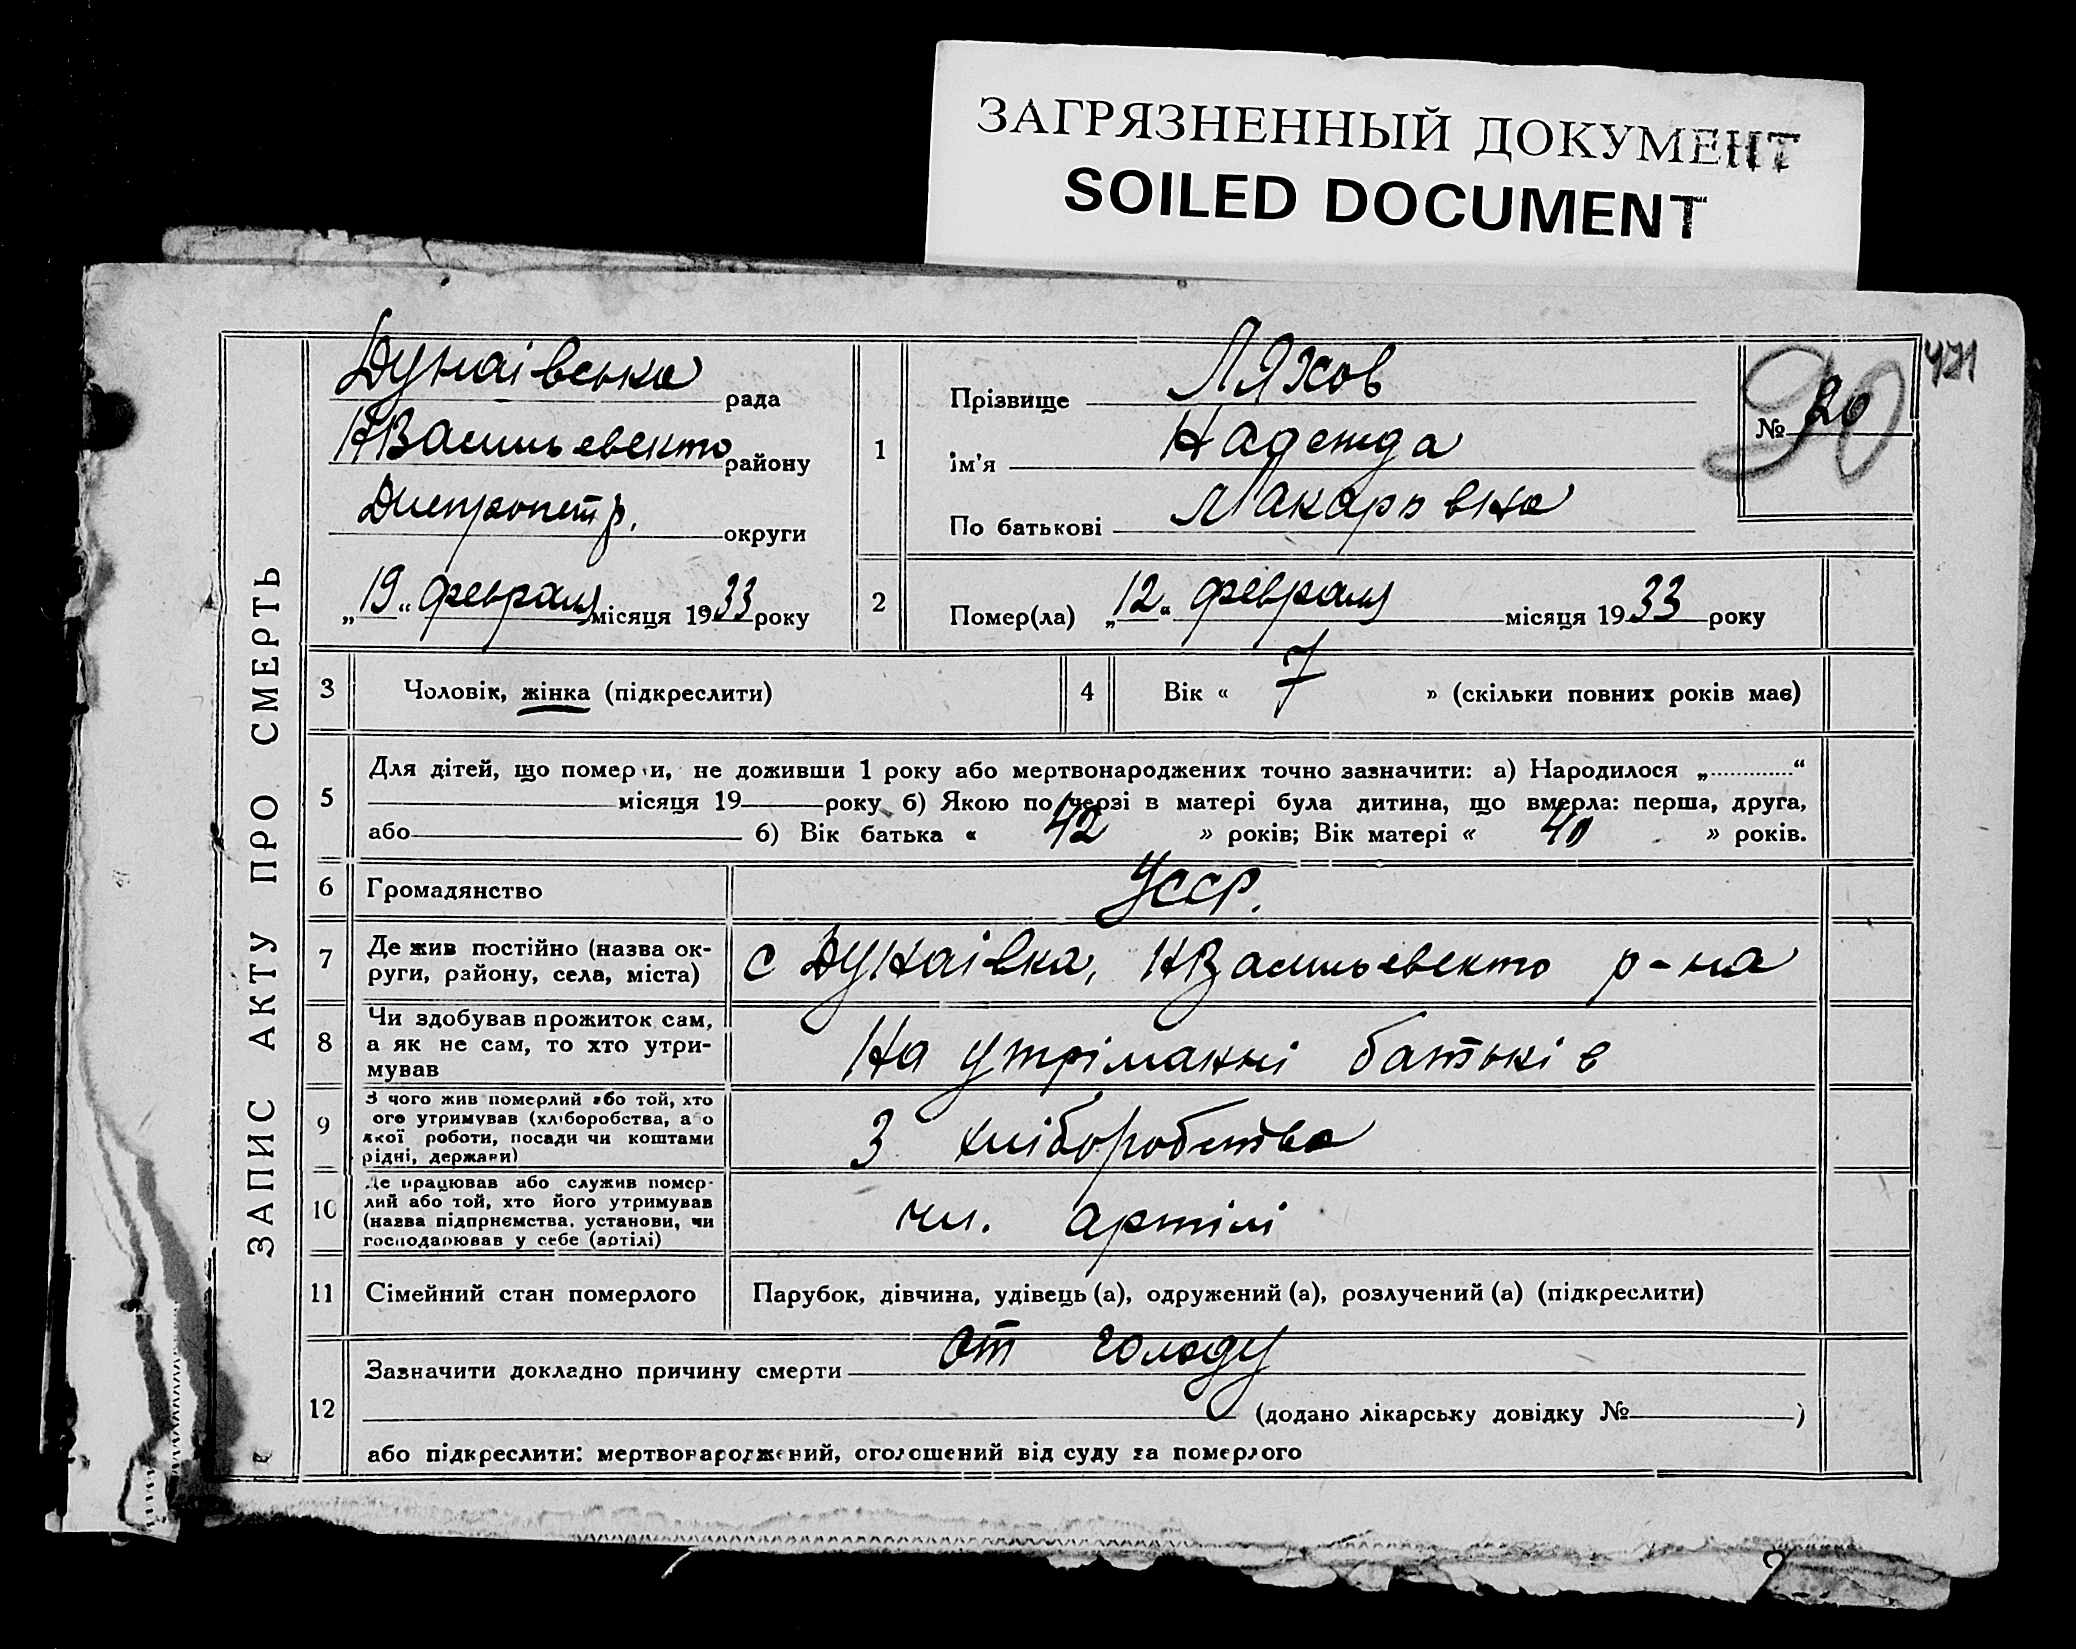 ЗАГРЯЗНЕННЫЙ ДОКУМЕНТ
SOILED DOCUMENT
471
ЗАПИС АКТУ ПРО СМЕРТЬ
Дунаівська рада
НВасильевского району
Днепропетр. округи
„19“ февраля місяця 1933 року
1
Прізвище Ляхов
Ім'я Надежда
По батькові Макаровна
№ 20
90
2 Помер(ла) „12“ февраля місяця 1933 року
3 Чоловік, жінка (підкреслити)
4 Вік « 7 » (скільки повних років має)
5 Для дітей, що померли, не доживши 1 року або мертвонароджених точно зазначити: а) Народилося „............“
місяця 19 року б) Якою по черзі в матері була дитина, що вмерла: перша, друга,
або б) Вік батька « 42 » років; Вік матері « 40 » років.
6 Громадянство УССР.
7 Де жив постійно (назва ок-
руги, району, села, міста) с Дунаівка, НВасильевского р-на
8 Чи здобував прожиток сам,
а як не сам, то хто утри-
мував На утріманні батьків
9 З чого жив померлий або той, хто
ого утримував (хліборобства, або
якої роботи, посади чи коштами
рідні, держави) З хліборобства
10 Де працював або служив помер-
лий або той, хто його утримував
(назва підприємства, установи, чи
господарював у себе (артілі) чл. артілі
11 Сімейний стан померлого Парубок, дівчина, удівець (а), одружений (а), розлучений (а) (підкреслити)
12 Зазначити докладно причину смерти от голоду
(додано лікарську довідку № )
або підкреслити: мертвонароджений, оголошений від суду за померлого